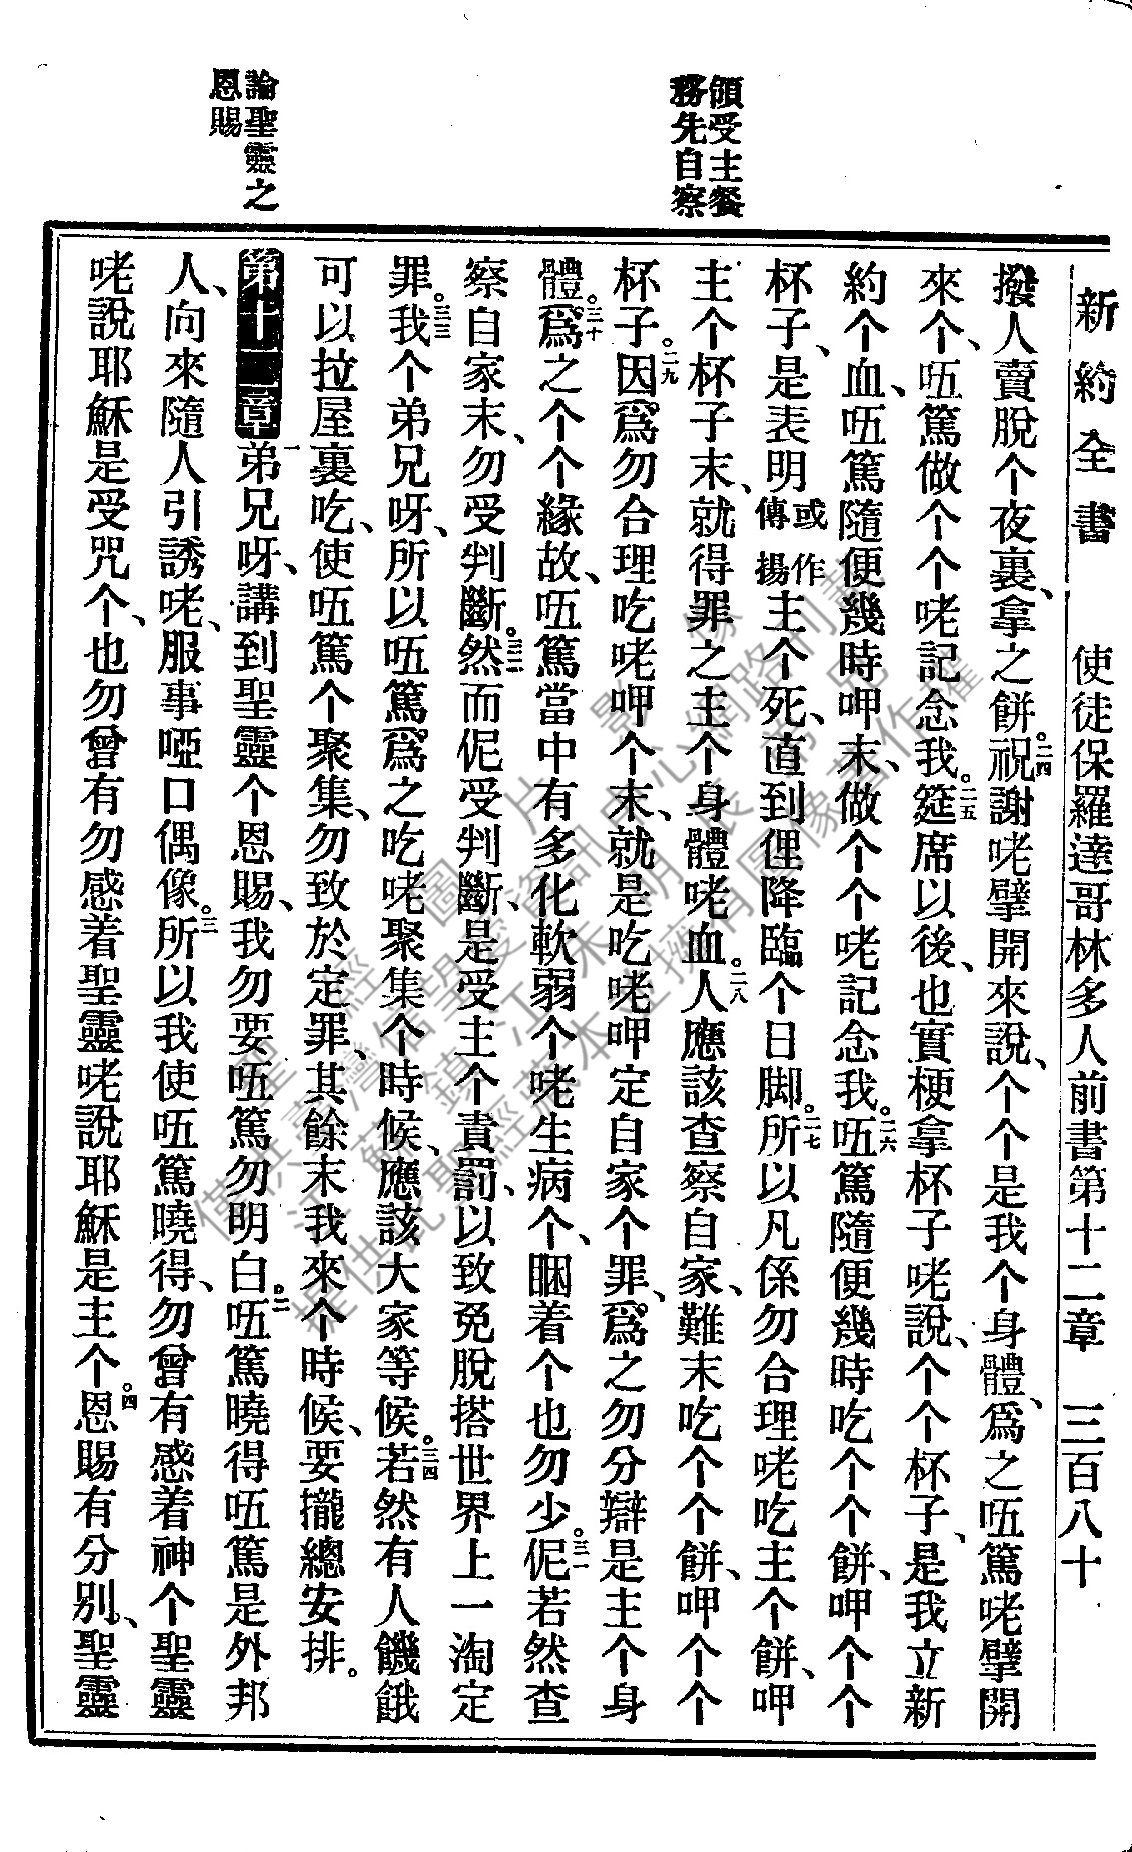 新約全書　使徒保羅達哥林多人前書第十二章　三百八十
領受主餐
務先自察
論聖靈之
恩賜
撥人賣脫个夜裏、拿之餅。二四祝謝咾擘開來說、个个是我个身體、爲之㑚篤咾擘開
來个、㑚篤做个个咾記念我。二五筵席以後、也實梗拿杯子咾說、个个杯子、是我立新
約个血、㑚篤隨便幾時呷末、做个个咾記念我。二六㑚篤隨便幾時吃个个餅、呷个个
杯子、是表明或作傳揚主个死、直到俚降臨个日脚。二七所以凡係勿合理咾吃主个餅、呷
主个杯子末、就得罪之主个身體咾血。二八人應該查察自家、難末吃个个餅、呷个个
杯子。二九因爲勿合理吃咾呷个末、就是吃咾呷定自家个罪、爲之勿分辯是主个身
體。三十爲之个个緣故、㑚篤當中有多化軟弱个咾生病个、睏着个也勿少。三一伲若然查
察自家末、勿受判斷。三二然而伲受判斷、是受主个責罰、以致免脫搭世界上一淘定
罪。三三我个弟兄呀、所以㑚篤爲之吃咾聚集个時候、應該大家等候。三四若然有人饑餓
可以拉屋裏吃、使㑚篤个聚集、勿致於定罪、其餘末我來个時候、要攏總安排。
第十二章一弟兄呀、講到聖靈个恩賜、我勿要㑚篤勿明白。二㑚篤曉得㑚篤是外邦
人、向來隨人引誘咾、服事啞口偶像。三所以我使㑚篤曉得、勿曾有感着神个聖靈
咾說耶穌是受咒个、也勿曾有勿感着聖靈咾說耶穌是主个。四恩賜有分別、聖靈
聖經圖片影像
僅供臺灣信望愛資訊中心網路刊載
江蘇鎮江朱明辰弟兄
提供此聖經典本並擁有圖像著作權